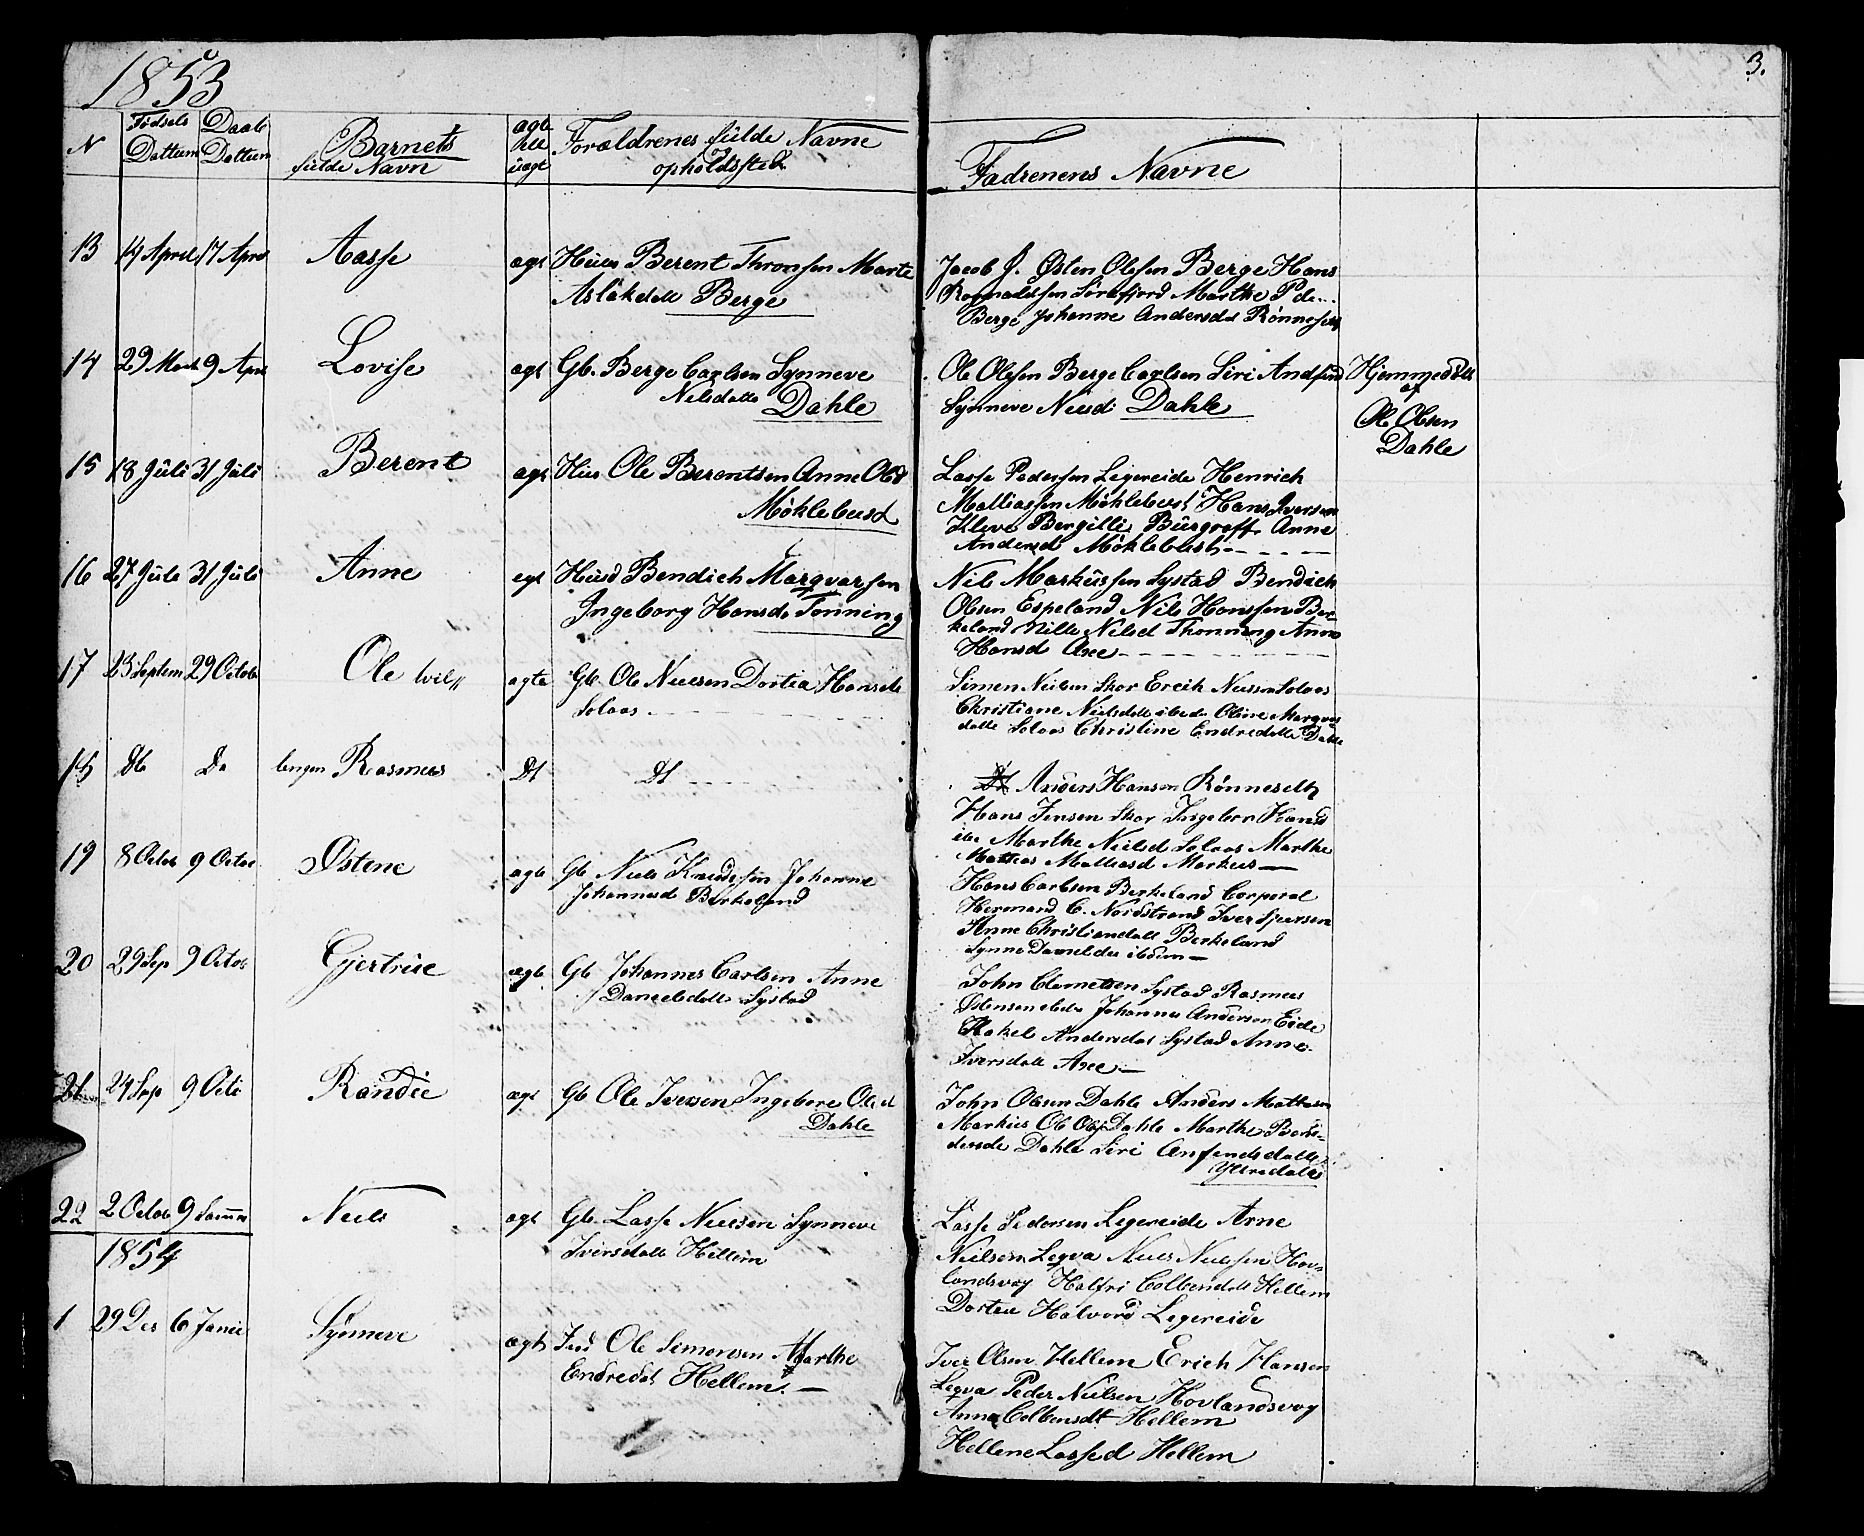 1853
3.
N
Fødsels Dattum
Daabs Dattum
Barnets fulde Navn
ægte
Forældrenes fulde Navne
opholdssted
Fadrenens Navne
13 14 April 17 April Aasse ægt Huus Berent Thronsen Marte
Aslakdatt Berge
Jacob J. Østen Olssen Berge Hans
Marthe
Berge Johanne Andersdt Rønneset
14 29 Marts 9 Apri Lovise ægt Gb. Berge Carlsen Synneve
Nilsdatte Dahle
Ole Olssen Berge Carlsen Siri
Synneve Nilsd Dahle
Hjemmedøbt
af
Ole Olsen
Dahle
15 18 Juli 31 Juli Berent ægt Huus Ole Berentsen Anne Olsd
Møklebust
Lasse Pedersen Legereide Henrich
Matiassen Møklebust Hans Iversen
Kleve Anne
Andersd Møklebust
16 27 Jule 31 Juli Anne egt Husd Bendich Marqvarsen
Ingeborg Hansdt Tonning
Nils Markussen Systad Bendich
Olsen Espeland Nils Hanssen Ber-
keland Nille Nilsd Thonning Anne
Hansd Axe
17 23 Septem 29 Octob Ole ægte Gb Ole Nielsen Dortea Hansdt
Solaas
Simen Nielsen Skor Erich Nielsen Solaas
Christiane Nielsdatt ibede Oline Marqvar
datte Solaas Christine Endredatte Dahle
18 Do Do Rasmus Dt Dt
Anders Hansen Rønneseth
Hans Jensen Skor Ingebor Hansd
ibe Marthe Nielsd Solaas Marthe
Matiasd Markus
19 8 Octob 9 Octob Østene ægte Gb Niels Knudssen Johanne
Johannesd Berkeland
Hans Carlsen Berkeland Corporal
Hermand C. Nordstrand Iver Sjursen
Anne Christiandatt Berkeland
Synne ibdem
20 29 Sep 9 Octob Gjertrüe ægte Gb Johannes Carlsen Anne
Danielsdatt Systad
John Clemetsen Systad Rasmus
Østensen Johannes Andersen Eide
Rakel Andersdat Systad Anne
Iversdatt Axe
21 24 Sep 9 Octo Randie ægt Gb Ole Iversen Ingebore Olsd
Dahle
John Olsen Dahle Anders Mathisen
Markus Ole Dahle Marthe
Dahle Siri
Ytredales
22 2 Octob 9 Samme Niels ægt Gb. Lasse Nielsen Synneve
Iversdatt Hellem
Lasse Pedersen Legereide Arne
Nielsen Leqva Niels Nielssen Hov-
landsvog Halfri Colbendatt Hellem
Dortea Halvord Legereide
1854
1 29 Des 6 Janu Synneve ægt Ole Simonsen Marthe
Endredat Hellem
Iver Olsen Hellem Erich Hansen
Leqva Peder Nielsen Hovlandsvog
Anna Colbensdt Hellem
Hellene Lassed Hellem